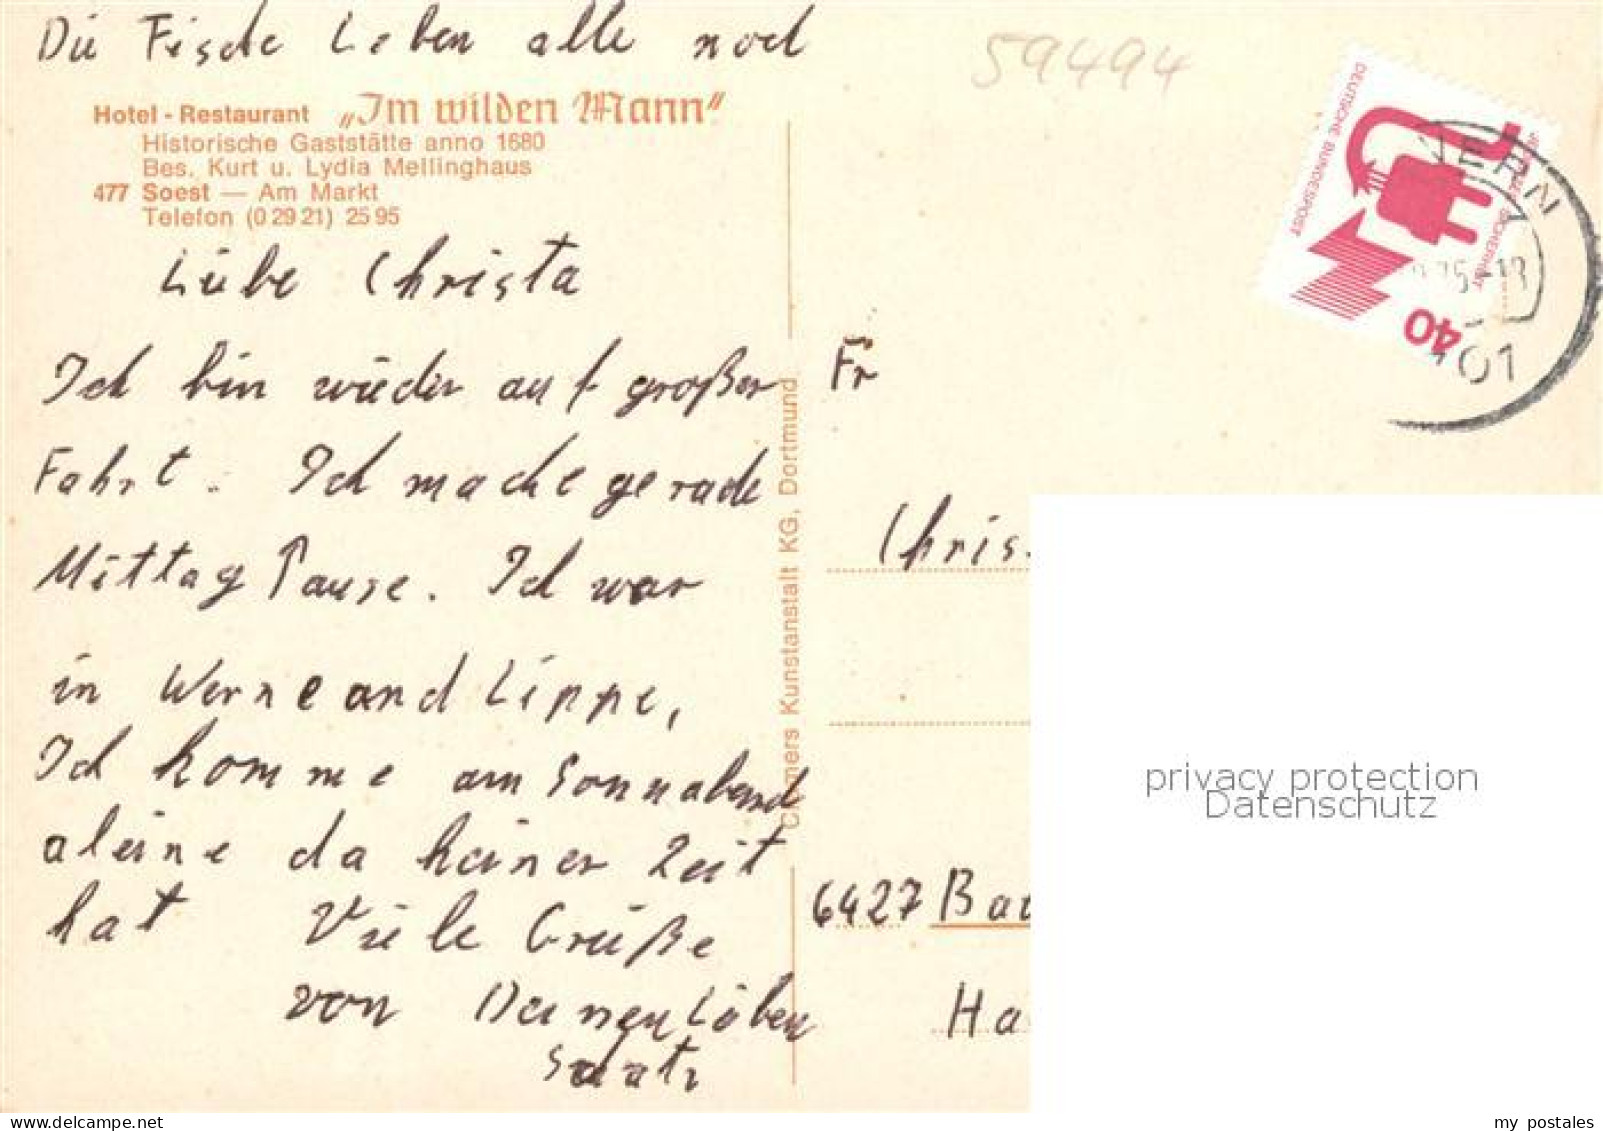 Die Fische Leben alle noch
59494
Hotel - Restaurant „Im wilden Mann"
Historische Gaststätte anno 1680
Bes. Kurt u. Lydia Mellinghaus
477 Soest — Am Markt
Telefon (0 29 21) 25 95
Liebe Christa
Ich bin wieder auf großer
Fahrt. Ich mache gerade
Mittag Pause. Ich war
in Werne and Lippe,
Ich komme am Sonnabend
aleine da keiner Zeit
hat Viele Grüße
von Deinen Lieben
Cramers Kunstanstalt KG, Dortmund
DEUTSCHE BUNDESPOST
40
101
Fr
Chris.
6427 Bad
Ha
privacy protection
Datenschutz
my postales